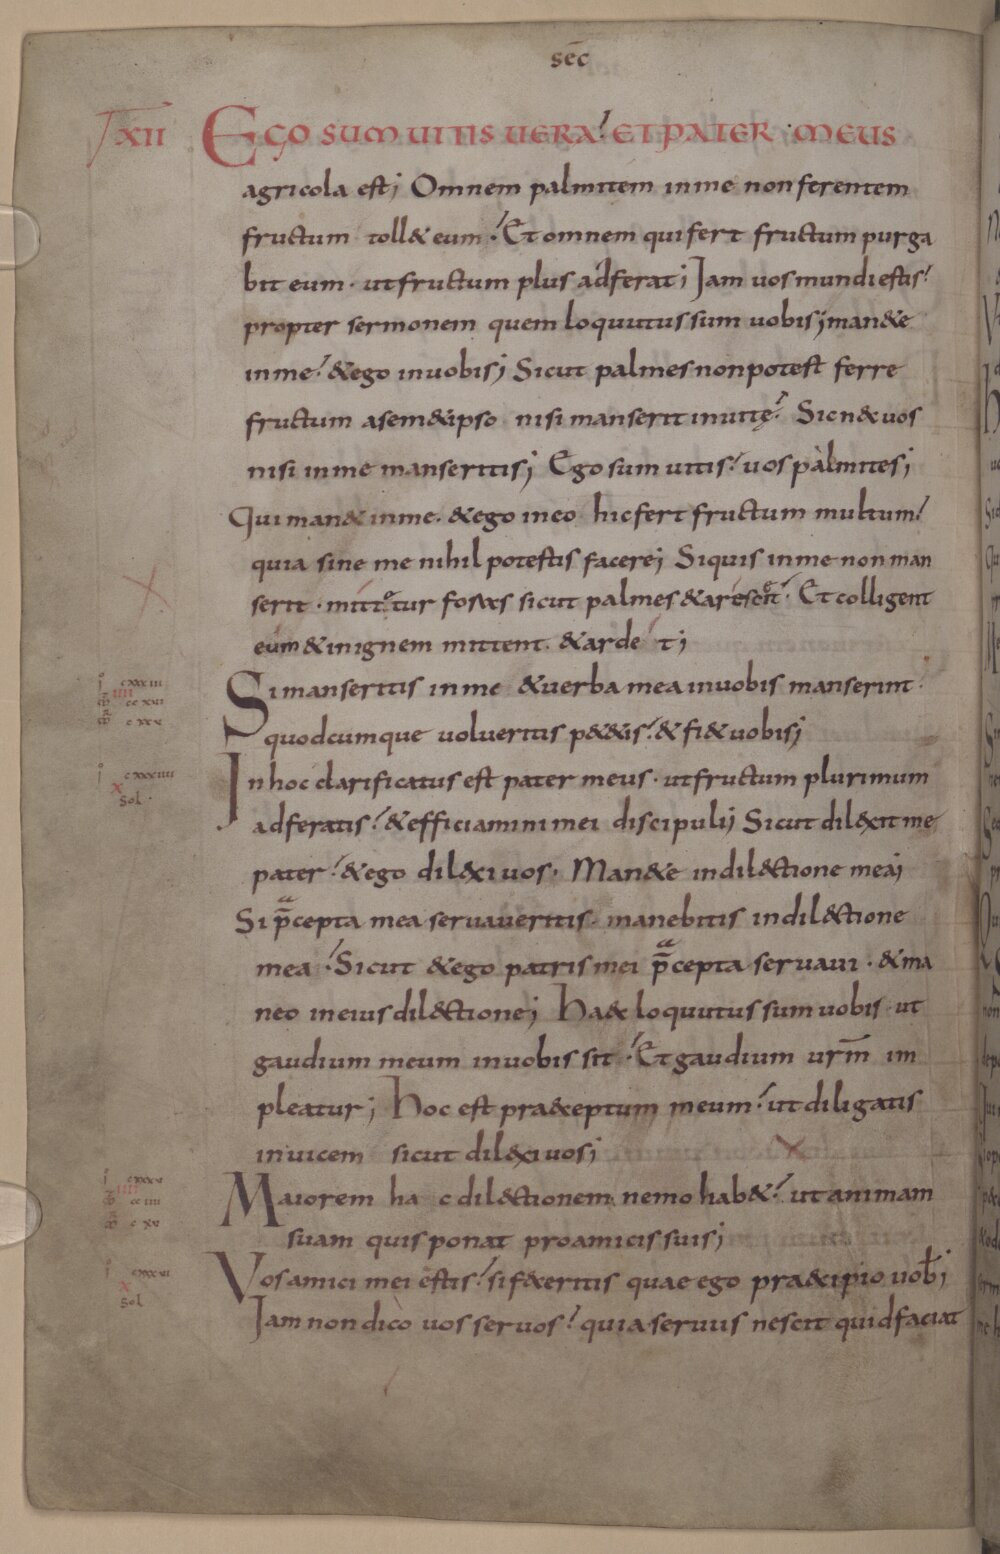 sēc
XII EGO SUM UITIS UERA? ET PATER MEUS
agricola est; Omnem palmitem inme nonferentem
fructum toll& eum. Et omnem quifert fructum purga
bit eum. utfructum plus adferat; Jam uosmundiestis?
propter sermonem quem loquutussum uobis; man&e
inme? &ego inuobis; Sicut palmesnonpotest ferre
fructum asem&ipso nisi manserit inuitę? Sicn&uos
nisi inme manseritis; Ego sum uitis? uospalmites;
Qui man& inme. &ego ineo hicfert fructum multum?
quia sine me nihil potestis facere; Siquis inme nonman
serit. mittetur foras sicut palmes &arescet? Et colligent
eum &inignem mittent. &ardet;
Si manseritis inme &uerba mea inuobis manserint.
quodcumque uolueritis p&&is? &fi&uobis;
j cxxxiii
cc xui
c xxx
Inhoc clarificatus est pater meus. utfructum plurimum
j cxxxiiii
x
sol.
adferatis? &efficiamini mei discipuli; Sicut dilexit me
pater? &ego dilexi uos. Man&e indilectione mea;
Si p̄cepta mea seruaueritis. manebitis indilectione
mea? Sicut &ego patrismei p̄cepta seruaui. &ma
neo ineiusdilectione; Haec loquutus sum uobis. ut
gaudium meum inuobis sit? Et gaudium urm̄ im
pleatur; Hoc est praeceptum meum? ut diligatis
inuicem sicut dilexi uos;
Maiorem hac dilectionem nemo hab&? ut animam
j cxxxu
cc iiii
c xu
suam quis ponat proamicissuis;
Vos amici mei estis? sifeceritis quae ego praecipio uob̄;
j cxxxui
x
sol
Jam nondico uos seruos? quia seruus nescit quidfaciat